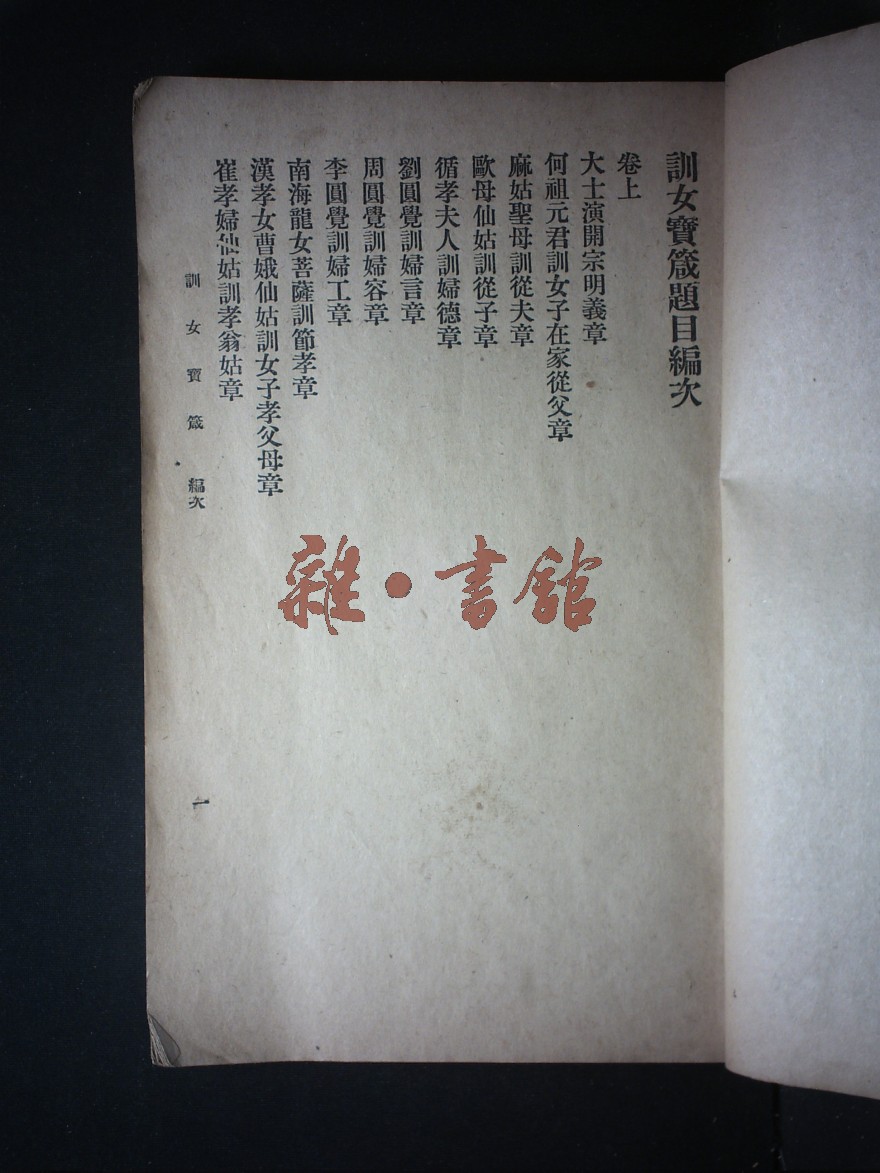 訓女寶箴題目編次
卷上
大士演開宗明義章
何祖元君訓女子在家從父章
麻姑聖母訓從夫章
歐母仙姑訓從子章
循孝夫人訓婦德章
劉圓覺訓婦言章
周圓覺訓婦容章
李圓覺訓婦工章
南海龍女菩薩訓節孝章
漢孝女曹娥仙姑訓女子孝父母章
崔孝婦仙姑訓孝翁姑章
訓女寶箴 編次 一
雜·書館